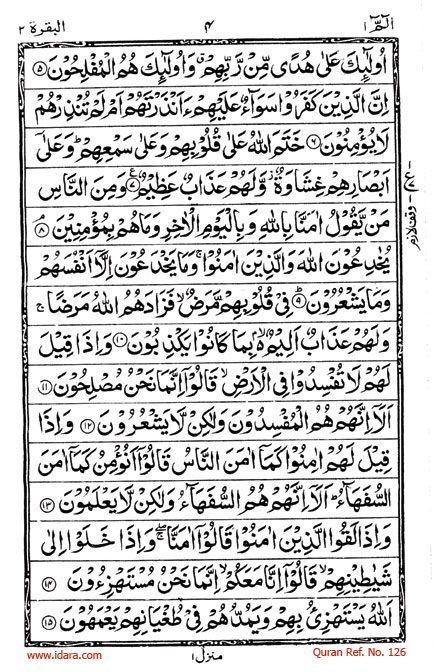 الٓمّٓ ١ ٤ البقرة ٢
اُولٰٓئِكَ عَلٰى هُدًى مِّنْ رَّبِّهِمْ ۙ وَاُولٰٓئِكَ هُمُ الْمُفْلِحُوْنَ ۝٥
اِنَّ الَّذِيْنَ كَفَرُوْا سَوَآءٌ عَلَيْهِمْ ءَاَنْذَرْتَهُمْ اَمْ لَمْ تُنْذِرْهُمْ
لَا يُؤْمِنُوْنَ ۝٦ خَتَمَ اللّٰهُ عَلٰى قُلُوْبِهِمْ وَعَلٰى سَمْعِهِمْ ؕ وَعَلٰٓى
اَبْصَارِهِمْ غِشَاوَةٌ ۫ وَّلَهُمْ عَذَابٌ عَظِيْمٌ ۝٧ وَمِنَ النَّاسِ
مَنْ يَّقُوْلُ اٰمَنَّا بِاللّٰهِ وَبِالْيَوْمِ الْاٰخِرِ وَمَا هُمْ بِمُؤْمِنِيْنَ ۝٨ۘ
يُخٰدِعُوْنَ اللّٰهَ وَالَّذِيْنَ اٰمَنُوْا ۚ وَمَا يَخْدَعُوْنَ اِلَّآ اَنْفُسَهُمْ
وَمَا يَشْعُرُوْنَ ۝٩ؕ فِيْ قُلُوْبِهِمْ مَّرَضٌ ۙ فَزَادَهُمُ اللّٰهُ مَرَضًا ۚ
وَلَهُمْ عَذَابٌ اَلِيْمٌ ۢ ۙ بِمَا كَانُوْا يَكْذِبُوْنَ ۝١٠ وَاِذَا قِيْلَ
لَهُمْ لَا تُفْسِدُوْا فِي الْاَرْضِ ۙ قَالُوْٓا اِنَّمَا نَحْنُ مُصْلِحُوْنَ ۝١١
اَلَآ اِنَّهُمْ هُمُ الْمُفْسِدُوْنَ وَلٰكِنْ لَّا يَشْعُرُوْنَ ۝١٢ وَاِذَا
قِيْلَ لَهُمْ اٰمِنُوْا كَمَآ اٰمَنَ النَّاسُ قَالُوْٓا اَنُؤْمِنُ كَمَآ اٰمَنَ
السُّفَهَآءُ ؕ اَلَآ اِنَّهُمْ هُمُ السُّفَهَآءُ وَلٰكِنْ لَّا يَعْلَمُوْنَ ۝١٣
وَاِذَا لَقُوا الَّذِيْنَ اٰمَنُوْا قَالُوْٓا اٰمَنَّا ۖۚ وَاِذَا خَلَوْا اِلٰى
شَيٰطِيْنِهِمْ ۙ قَالُوْٓا اِنَّا مَعَكُمْ ۙ اِنَّمَا نَحْنُ مُسْتَهْزِءُوْنَ ۝١٤
اَللّٰهُ يَسْتَهْزِئُ بِهِمْ وَيَمُدُّهُمْ فِيْ طُغْيَانِهِمْ يَعْمَهُوْنَ ۝١٥
وقف لازم
منزل ١
www.idara.com
Quran Ref. No. 126